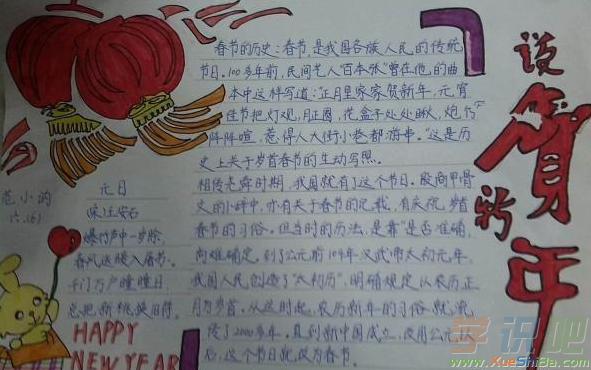 春节的历史：春节，是我国各族人民的传统
节日。100多年前，民间艺人"百本张"曾在他的曲
本中这样写道："正月里家家贺新年，元宵
佳节把灯观，月正圆，花盒子处处瞅，炮竹
阵阵喧，惹得人大街小巷都游串。"这是历
史上关于岁首春节的生动写照。
相传尧舜时期，我国就有了这个节日。殷商甲骨
文的小碎中，亦有关于春节的记载，有庆祝岁首
春节的习俗。但当时的历法，是靠"是否准确，
尚难确定。到了公元前104年汉武帝太初元年，
我国人民创造了"太初历"，明确规定以农历正
月为岁首。从这时起，农历新年的习俗就流
传了2000多年。直到新中国成立，改用公元
后，这个节日就改为春节。
说贺新年
范小鸿
六（6）
元日
宋王安石
爆竹声中一岁除，
春风送暖入屠苏。
千门万户曈曈日，
总把新桃换旧符。
HAPPY
NEW YEAR
学识吧
www.XueShiBa.com